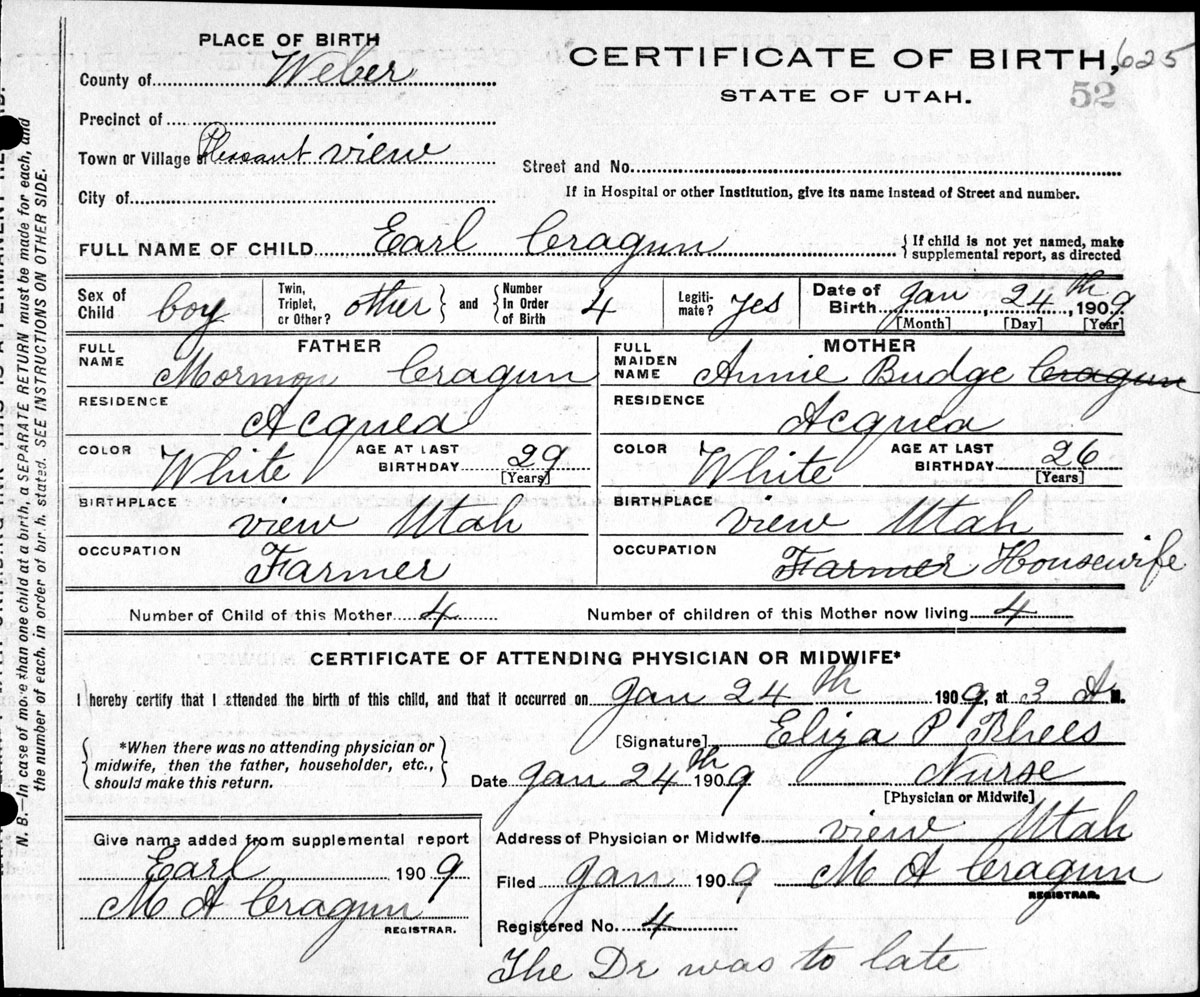 PLACE OF BIRTH
CERTIFICATE OF BIRTH, 625
County of Weber
STATE OF UTAH. 52
Precinct of
Town or Village of Pleasant view
Street and No.
City of
If in Hospital or other Institution, give its name instead of Street and number.
FULL NAME OF CHILD Earl Cragun {If child is not yet named, make
supplemental report, as directed
Sex of Child boy Twin, Triplet, or Other? other } and { Number In Order of Birth 4 Legiti-mate? yes Date of Birth Jan, 24th, 1909
[Month] [Day] [Year]
FATHER MOTHER
FULL NAME Mormon Cragun FULL MAIDEN NAME Annie Budge Cragun
RESIDENCE RESIDENCE
Acquea Acquea
COLOR White AGE AT LAST BIRTHDAY 29 [Years] COLOR White AGE AT LAST BIRTHDAY 26 [Years]
BIRTHPLACE view Utah BIRTHPLACE view Utah
OCCUPATION Farmer OCCUPATION Farmer Housewife
Number of Child of this Mother 4 Number of children of this Mother now living 4
CERTIFICATE OF ATTENDING PHYSICIAN OR MIDWIFE*
I hereby certify that I attended the birth of this child, and that it occurred on Jan 24th 1909, at 3 A M.
[Signature] Eliza P Rhees
{*When there was no attending physician or
midwife, then the father, householder, etc.,
should make this return.}
Date Jan 24th 1909 Nurse
[Physician or Midwife]
Give name added from supplemental report
Earl 1909
M A Cragun
REGISTRAR.
Address of Physician or Midwife view Utah
Filed Jan 1909 M A Cragun
REGISTRAR.
Registered No. 4
The Dr was to late
N. B.—In case of more than one child at a birth, a SEPARATE RETURN must be made for each, and
the number of each, in order of birth, stated. SEE INSTRUCTIONS ON OTHER SIDE.